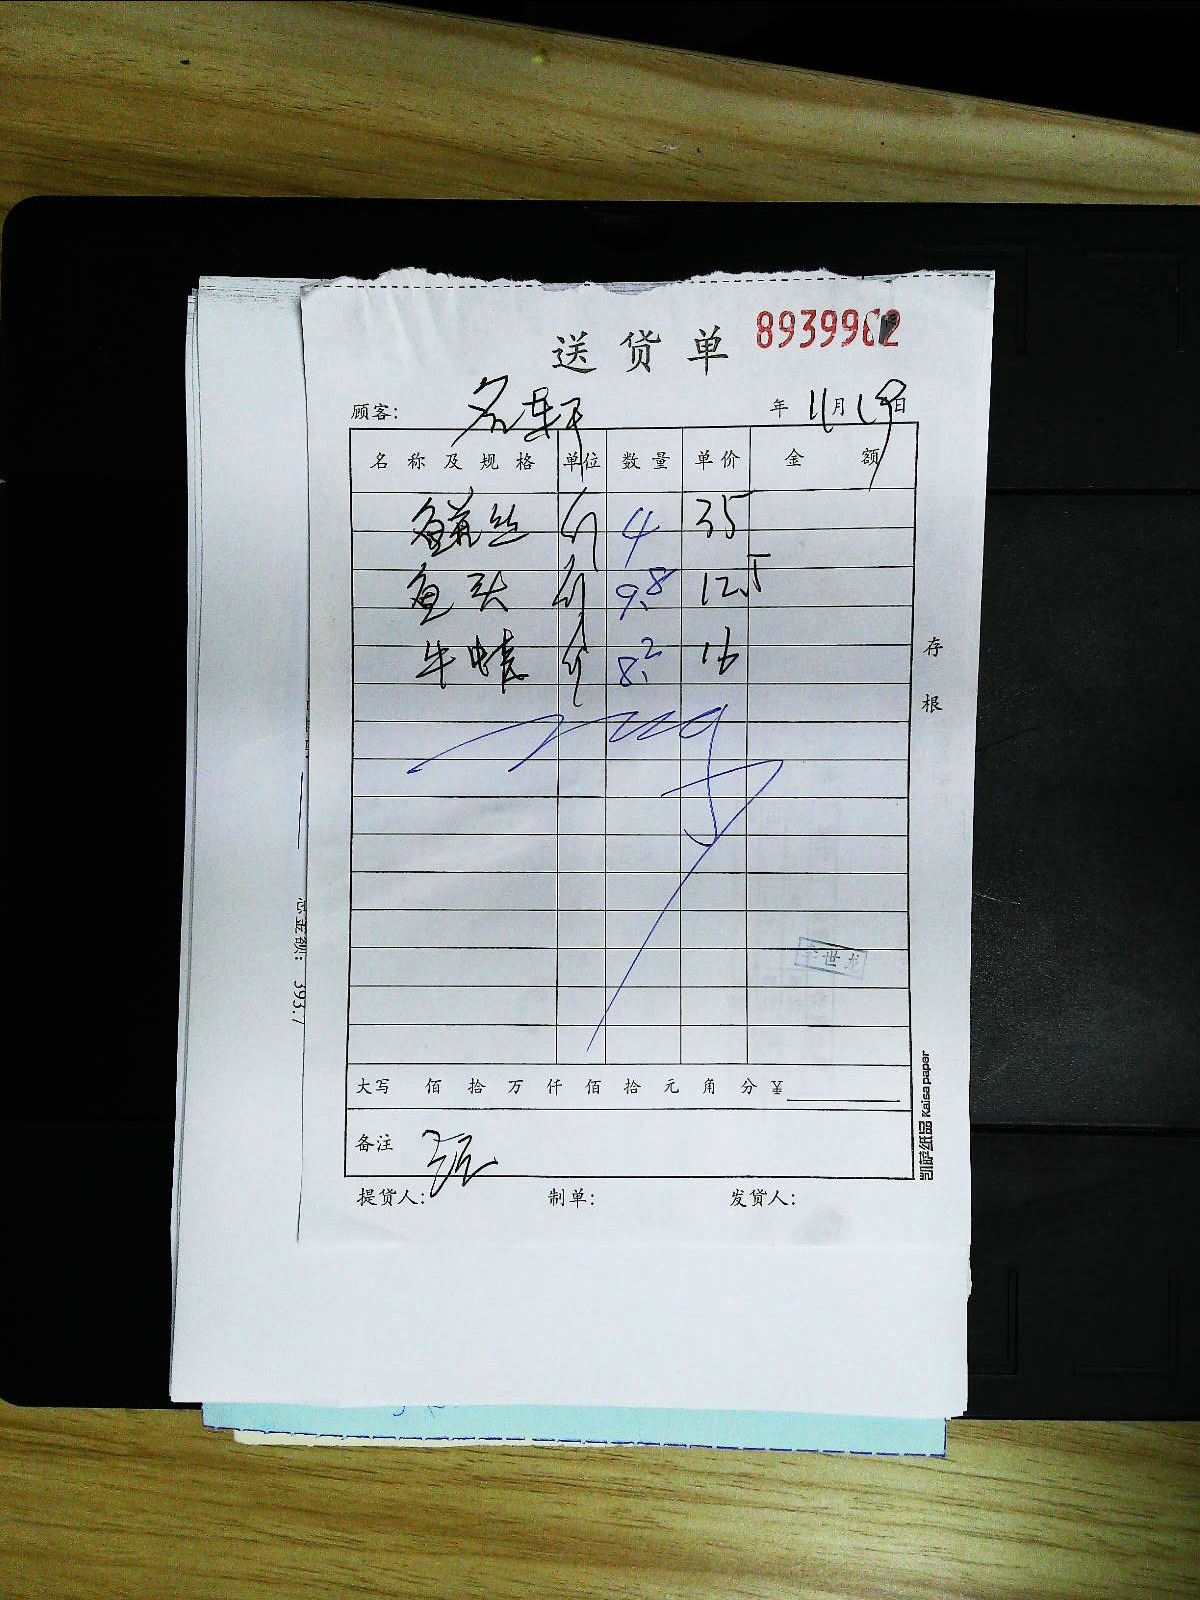 送货单 89399
顾客: 名轩 年 11月19日
名称及规格 单位 数量 单价 金额
鱼丝 斤 4 35
鱼头 斤 9.8 12.5
牛蛙 斤 8.2 16
存根
李世龙
大写 佰 拾 万 仟 佰 拾 元 角 分 ¥
备注
提货人: 制单: 发货人:
凯萨纸品 Kaisa paper
总金额: 393.7